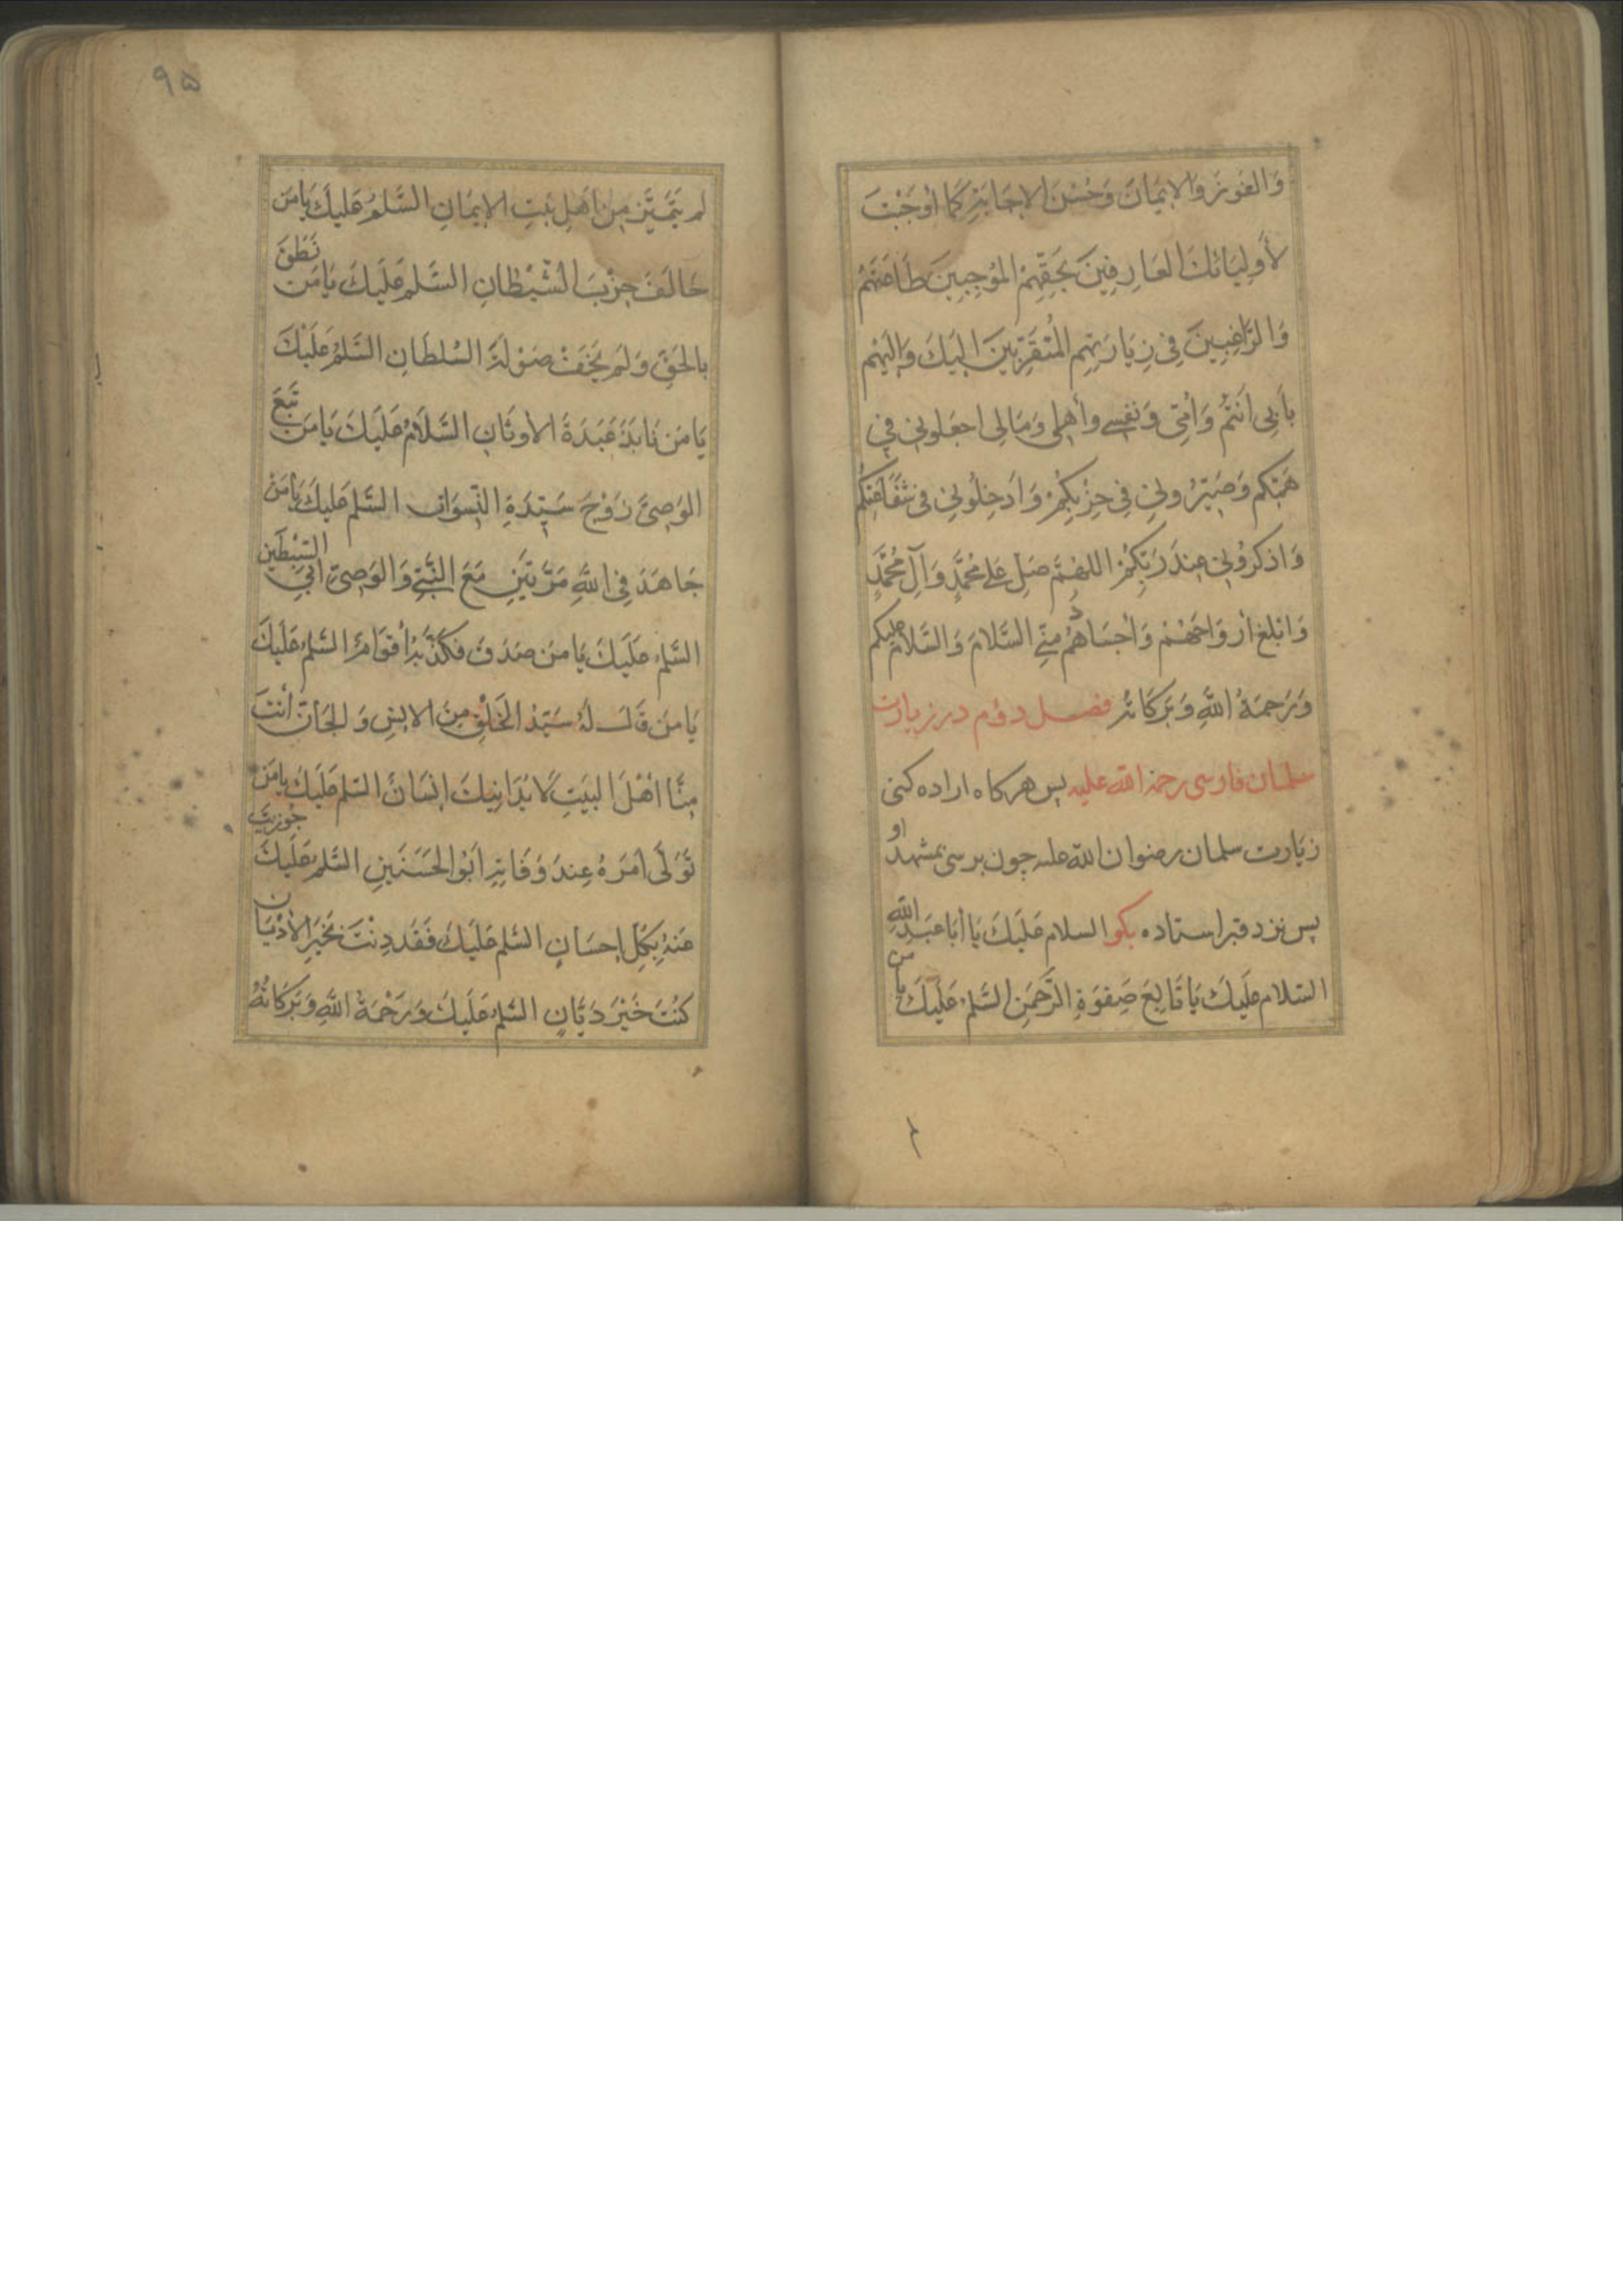 وَالفَوزَ وَالايمَانَ وَحُسْنَ الاجَابَةِ كَمَا أَوجَبْتَ
لأَولِيَائكَ العَارِفينَ بحَقِّهِمْ المُوجِبِينَ طَاعَتَهُمْ
وَالرَّاغِبِينَ فِي زِيَارَتِهِم المُتَقَرِّبينَ اليكَ وَاليهِم
بأبِي أنتُم وَأُمّي وَنفسِي وأهلِي وَمَالِي اجعَلوني في
هَمّكم وَصَيّرُوني فِي حِزْبِكُمْ وَادخِلُوني في شفَاعَتِكُم
وَاذكرُوني عِندَ رَبّكُمْ اللهُمَّ صَلِّ عَلى محُمَّدٍ وَآلِ مُحُمَّدٍ
وَابلغ أروَاحَهُمْ وَأجسَادهُم مِنّي السَّلامَ وَالسَّلامُ عليكم
وَرَحمَةُ اللهِ وَبَرَكَاتُه فصل دوّم در زيارت
سلمان فارسى رحمة الله عليه پس هركاه اراده كنى
زيارت سلمان رضوان الله عليه چون برسى بمشهد او
پس نزد قبر استاده بكو السلام عَلَيكَ يَا أبَا عَبدِ اللهِ
السّلام عليكَ يَا تَابِعَ صَفوَةِ الرَّحمَنِ السَّلم عَلَيكَ يا من
٩٥
لم يَتَمَيَّز مِن اَهلِ بَيتِ الايمَانِ السَّلمُ عَليكَ يَا مَن
خَالَفَ حِزْبَ الشَّيْطَانِ السَّلم عَلَيكَ يَا مَن نَطَقَ
بالحَقِّ وَلَم يَخَفْ صَوْلَةَ السُلطَانِ السَّلمُ عَلَيْكَ
يَا مَن نَابَذَ عَبَدَةَ الأوثَانِ السَّلَامُ عَلَيكَ يَا مَن تَبعَ
الوَصِيَّ زَوْجَ سَيّدَةِ النّسوَان السَّلم عَليكَ يَا مَنْ
جَاهَدَ فِي اللهِ مَرَّتَينِ مَعَ النَّبيِّ وَالوَصِيّ أبي السّبْطَينِ
السَّلم عَلَيكَ يَا مَن صَدَقَ فكَذَّبَهُ أقوَامٌ السَّلم عَلَيكَ
يَا مَن قَالَ لَهُ سَيّدُ الخَلْقِ مِنَ الانسِ وَالجَانّ أنتَ
مِنّا اَهْلَ البيَتِ لَا يُدَانِيكَ اِنسَانٌ السّلم عَلَيكَ يا مَن
تَوَلّى أَمرَهُ عِندَ وَفَاتِهِ اَبُو الحَسَنَينِ السَّلم عَلَيكَ جُوزيتَ
عَنهُ بِكُلِّ إحسَانٍ السَّلم عَلَيكَ فَقَد دِنْتَ بخَيرِ الأَديَان
كُنتَ خَيْرَ دَيَّانٍ السَّلم عَلَيكَ وَرَحْمَةُ اللهِ وَبَرَكَاتُهُ